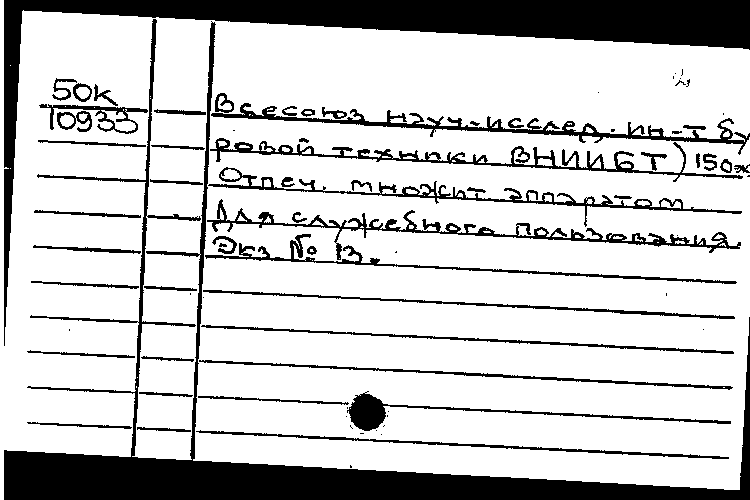 2
50К
10933
Всесоюз науч.-исслед. ин-т бу
ровой техники ВНИИБТ) 150 ж
Отпеч. множит аппаратом.
Для служебного пользования.
Экз № 13.